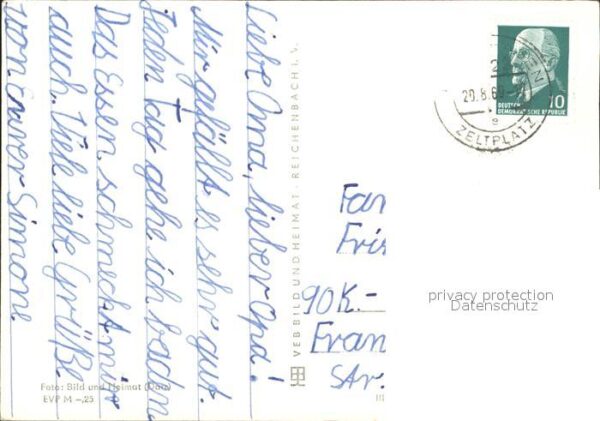 Liebe Oma, lieber Opa!
Mir gefällt es sehr gut.
Jeden Tag gehe ich baden.
Das Essen schmeckt mir
auch. Viele liebe Grüße
von Eurer Simone
VEB BILD UND HEIMAT · REICHENBACH I. V.
20.8.6
ZELTPLATZ
DEUTSCHE
DEMOKRATISCHE REPUBLIK
10
Fan
Fris
90K.-
Fran
Str.
privacy protection
Datenschutz
Foto: Bild und Heimat
EVP M –,25
III